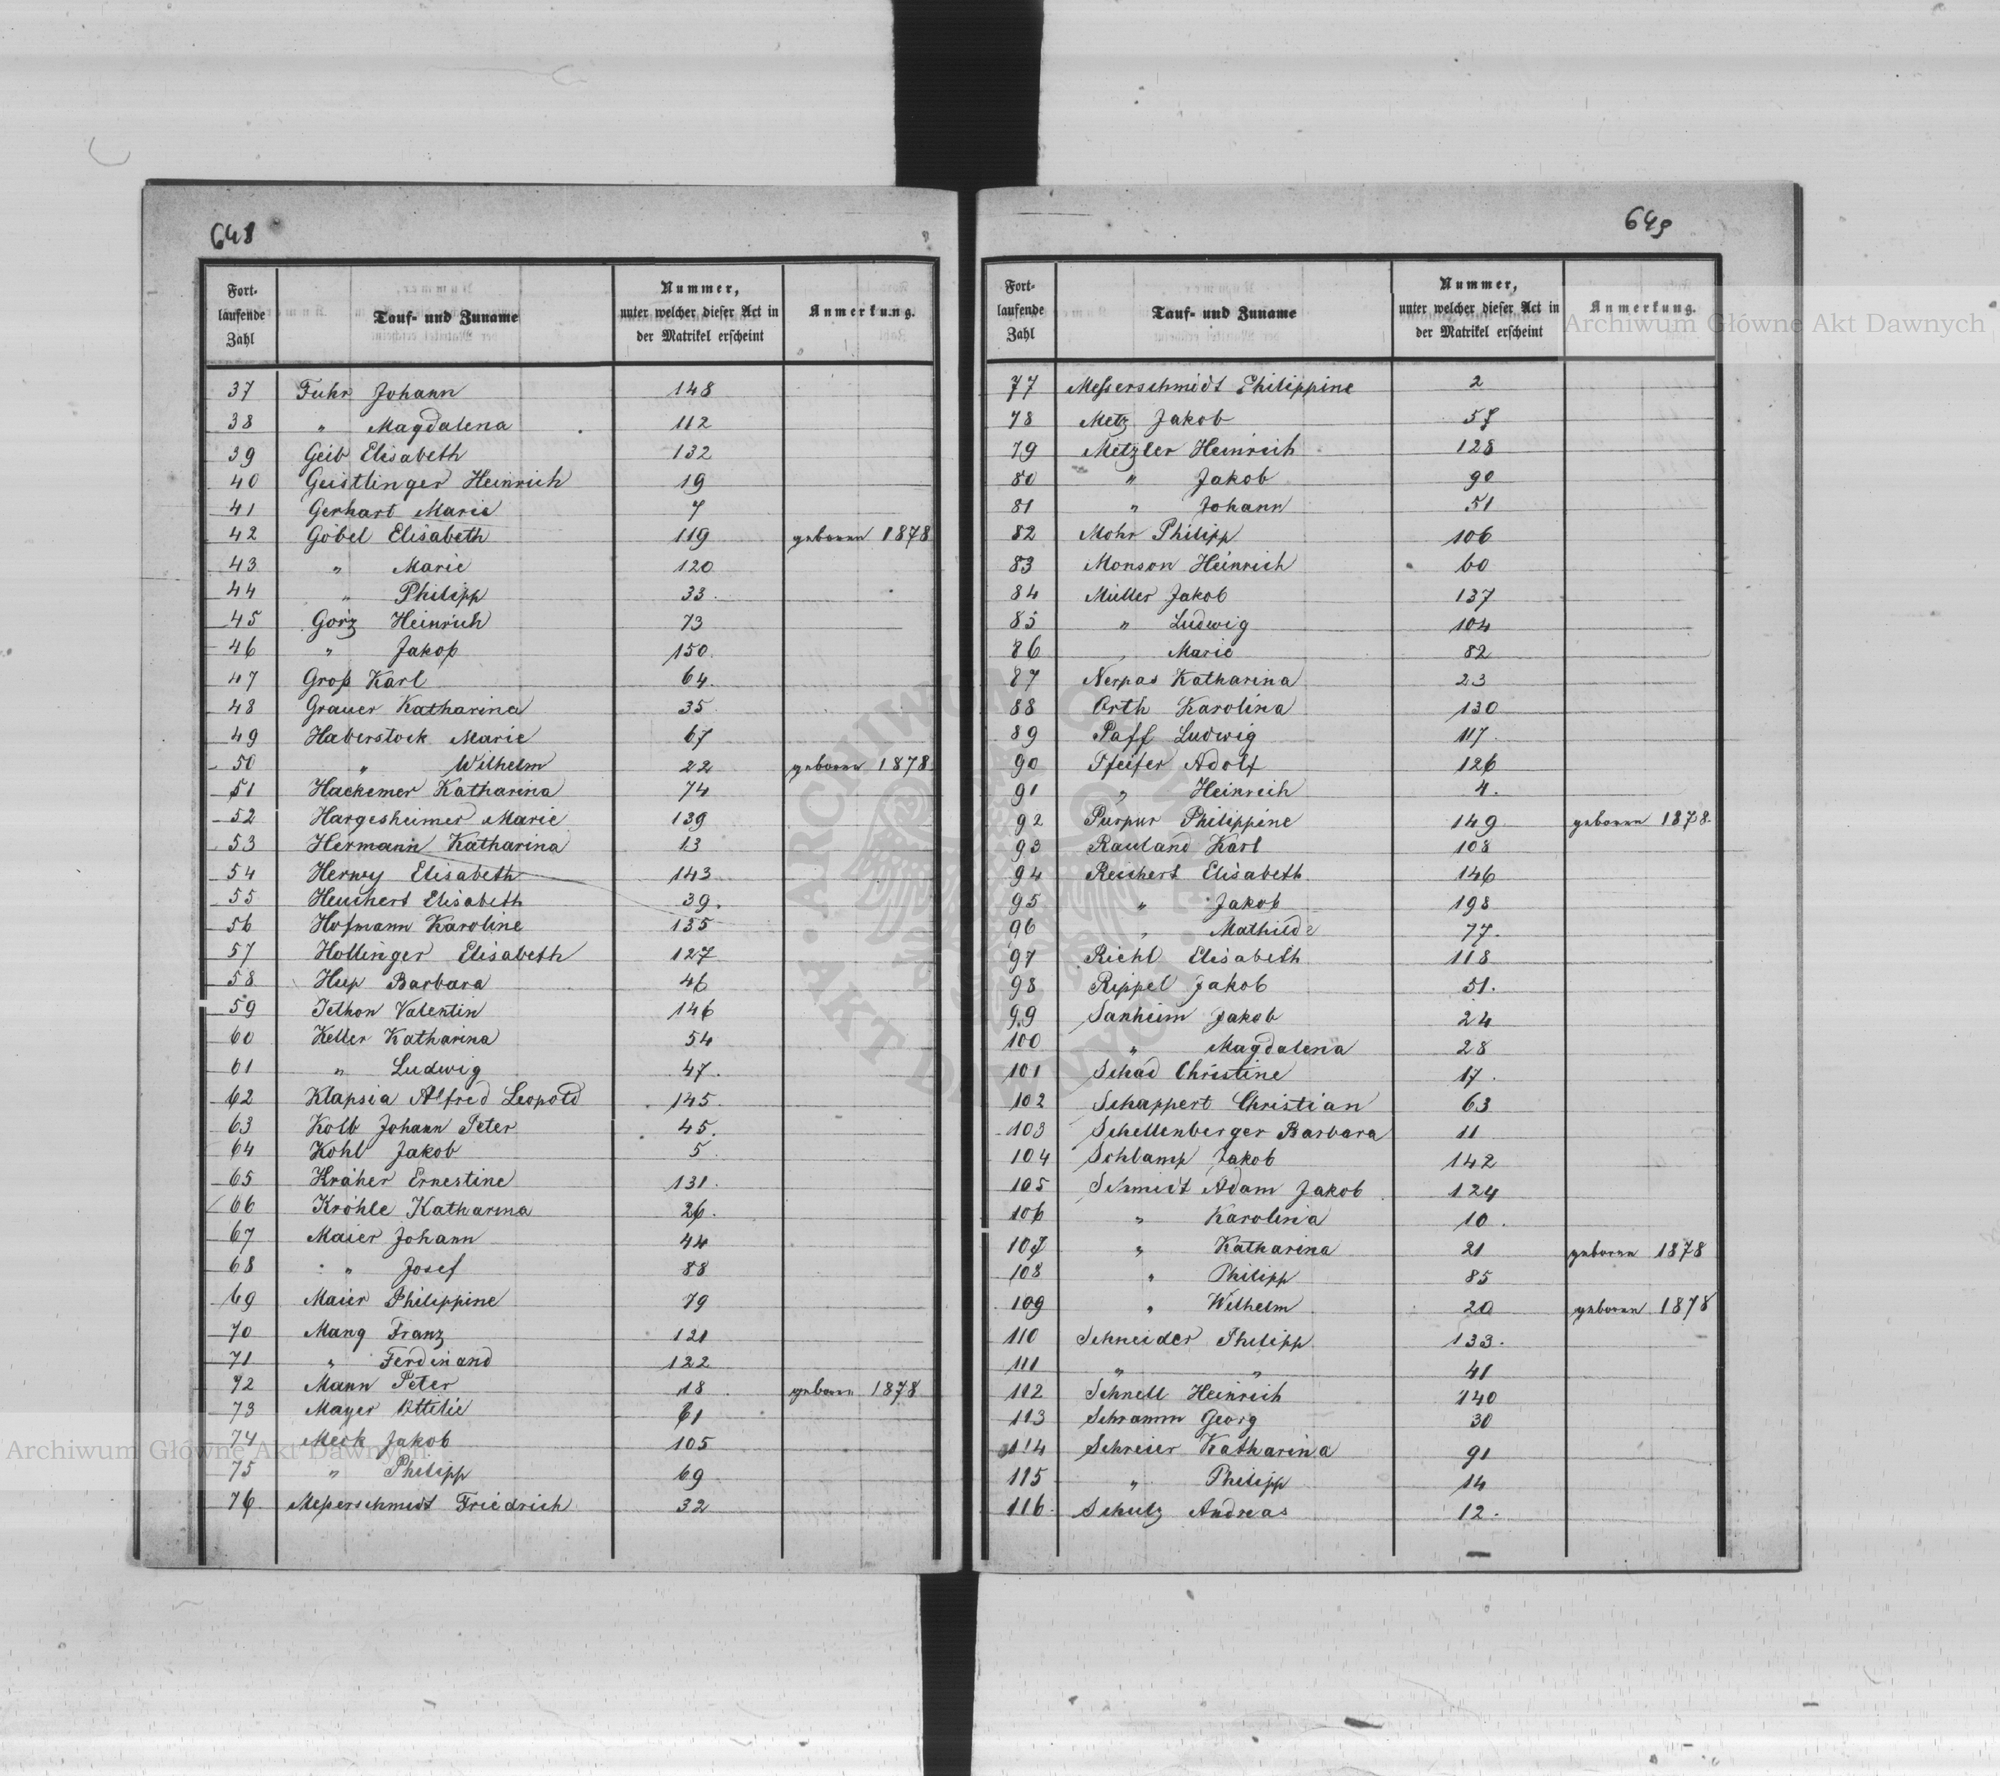 648
Fort-
laufende
Zahl
Tauf- und Zuname
Nummer,
unter welcher dieser Act in
der Matrikel erscheint
Anmerkung.
37 Fuhr Johann 148
38 " Magdalena 112
39 Geib Elisabeth 132
40 Geistlinger Heinrich 19
41 Gerhart Marie 7
42 Göbel Elisabeth 119 geboren 1878
43 " Marie 120
44 " Philipp 33.
45 Görz Heinrich 73
46 " Jakob 150.
47 Groß Karl 64.
48 Grauer Katharina 35
49 Haberstock Marie 67
50 " Wilhelm 22 geboren 1878
51 Hackemer Katharina 74
52 Hargesheimer Marie 139
53 Hermann Katharina 13
54 Herwy Elisabeth 143
55 Heuchert Elisabeth 39.
56 Hofmann Karoline 135
57 Hollinger Elisabeth 127
58 Barbara 46
59 Jethon Valentin 146
60 Keller Katharina 54
61 " Ludwig 47.
62 Klapsia Alfred Leopold 145
63 Kolb Johann Peter 45.
64 Kohl Jakob 5
65 Kräher Ernestine 131.
66 Kröhle Katharina 26.
67 Maier Johann 44
68 " Josef 88
69 Maier Philippine 79
70 Mang Franz 121
71 " Ferdinand 122
72 Mann Peter 18 geboren 1878
73 Mayer Ottilie 61
74 Meck Jakob 105
75 " Philipp 69
76 Meßerschmidt Friedrich 32
649
Fort-
laufende
Zahl
Tauf- und Zuname
Nummer,
unter welcher dieser Act in
der Matrikel erscheint
Anmerkung.
77 Meßerschmidt Philippine 2
78 Metz Jakob 57
79 Metzler Heinrich 128
80 " Jakob 90
81 " Johann 51
82 Mohr Philipp 106
83 Monson Heinrich 60
84 Müller Jakob 137
85 " Ludwig 104
86 " Marie 82
87 Nerpas Katharina 23
88 Orth Karolina 130
89 Paff Ludwig 117.
90 Pfeifer Adolf 126
91 " Heinrich 4.
92 Purpur Philippine 149 geboren 1878.
93 Rauland Karl 108
94 Reichert Elisabeth 146
95 " Jakob 198
96 " Mathilde 77.
97 Riehl Elisabeth 118
98 Rippel Jakob 51.
99 Sanheim Jakob 24
100 " Magdalena 28
101 Schad Christine 17.
102 Schappert Christian 63
103 Schellenberger Barbara 11
104 Schlamp Jakob 142
105 Schmidt Adam Jakob 124
106 " Karolina 10.
107 " Katharina 21 geboren 1878
108 " Philipp 85
109 " Wilhelm 20 geboren 1878
110 Schneider Philipp 133.
111 " " 41
112 Schnell Heinrich 140
113 Schramm Georg 30
114 Schreier Katharina 91
115 " Philipp 14
116. Schulz Andreas 12.
Archiwum Główne Akt Dawnych
Archiwum Główne Akt Dawnych
ARCHIWUM GŁÓWNE AKT DAWNYCH